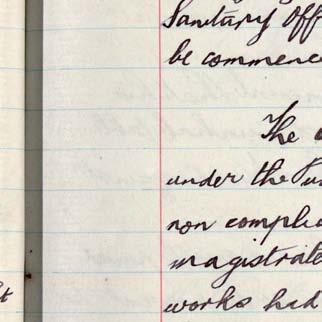 Sanitary Off
be commence
The
under the Pu
non complia
magistrate
works had